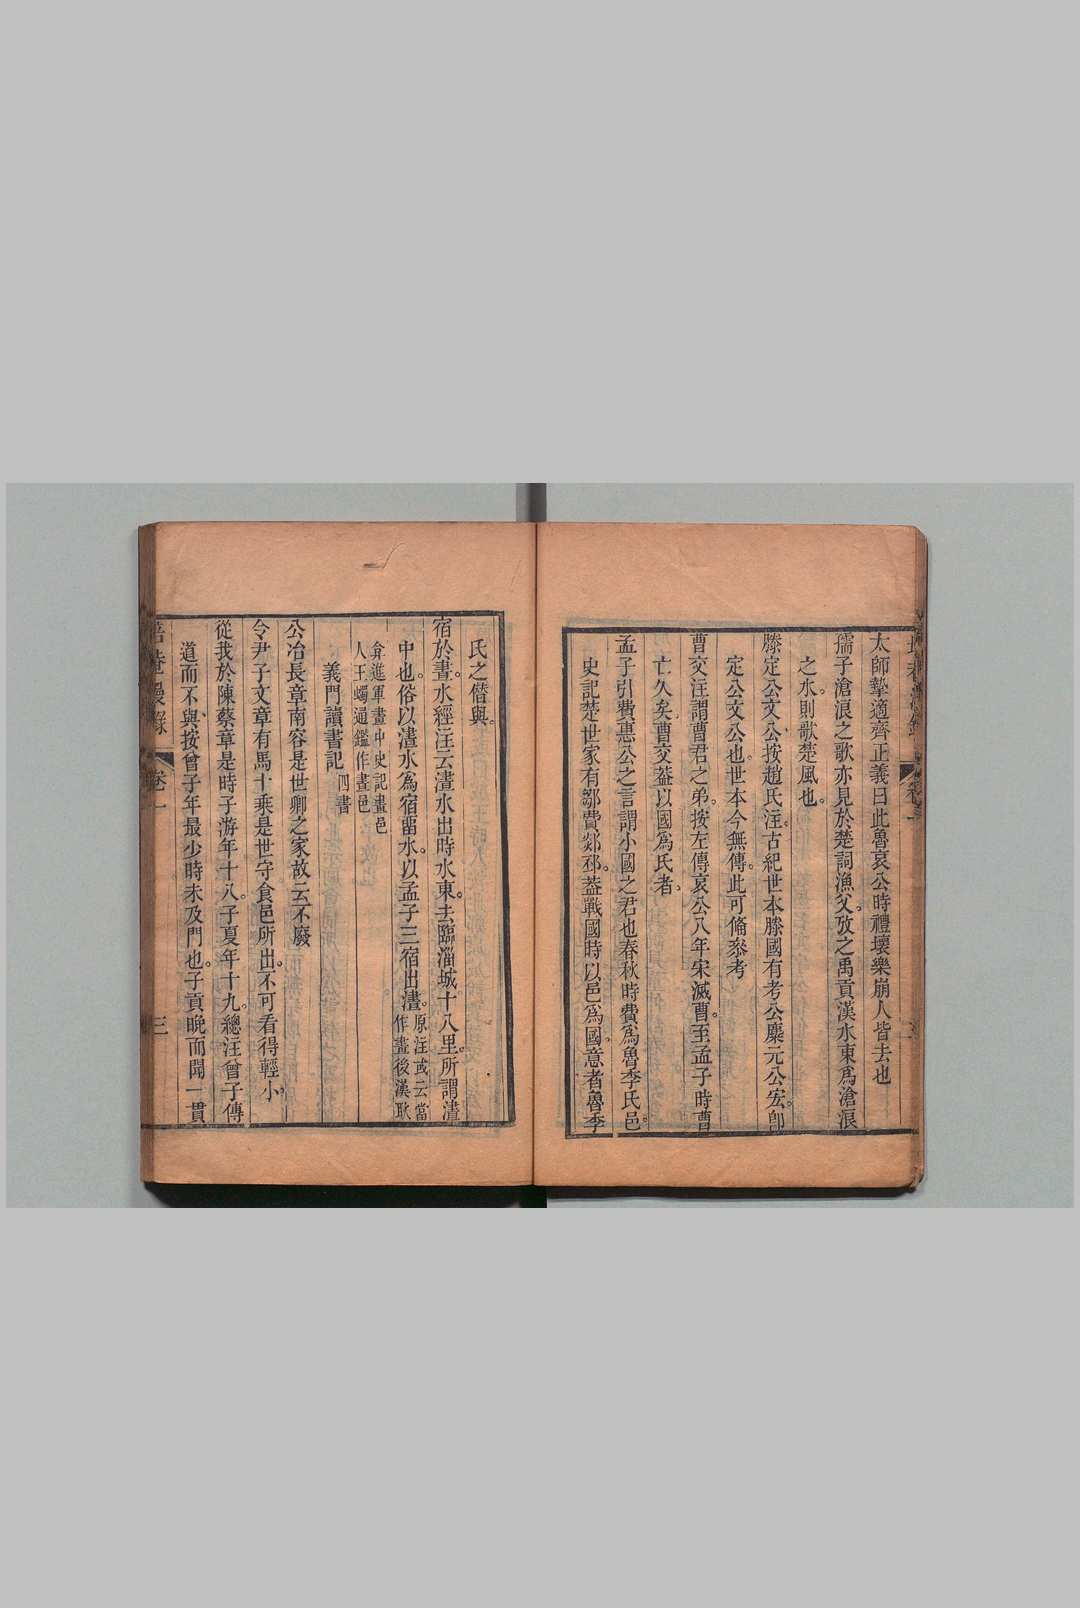 太師摯適齊正義曰此魯哀公時禮壞樂崩人皆去也
孺子滄浪之歌亦見於楚詞漁父攷之禹貢漢水東爲滄浪
之水。則歌楚風也。
滕定公文公按趙氏注。古紀世本滕國有考公麋元公宏。卽
定公文公也。世本今無傳。此可偹叅考
曹交注謂曹君之弟。按左傳哀公八年宋滅曹。至孟子時曹
亡久矣。曹交葢以國爲氏者。
孟子引費惠公之言謂小國之君也春秋時費爲魯季氏邑。
史記楚世家有鄒費郯邳。葢戰國時以邑爲國。意者魯季
氏之僭與。
宿於晝。水經注云澅水出時水東。去臨淄城十八里。所謂澅
中也。俗以澅水爲宿畱水。以孟子三宿出澅。原注或云當
作畫後漢耿
弇進軍畫中史記畫邑
人王蠋通鑑作畫邑
義門讀書記四書
公冶長章南容是世卿之家故云不廢
令尹子文章有馬十乘是世守食邑所出。不可看得輕小。
從我於陳蔡章是時子游年十八。子夏年十九。總注曾子傳
道而不與按曾子年最少時未及門也。子貢晩而聞一貫
卷一
三